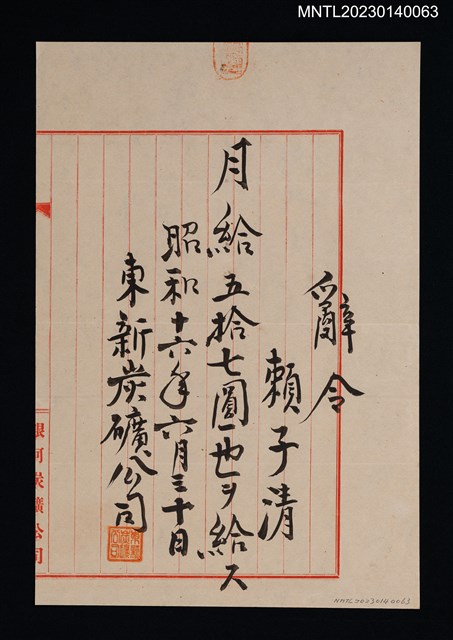 MNTL20230140063
辭令
賴子清
月給五拾七圓也ヲ給ス
昭和十六年六月三十日
東新炭礦公司
銀河炭礦公司
MNTL20230140063